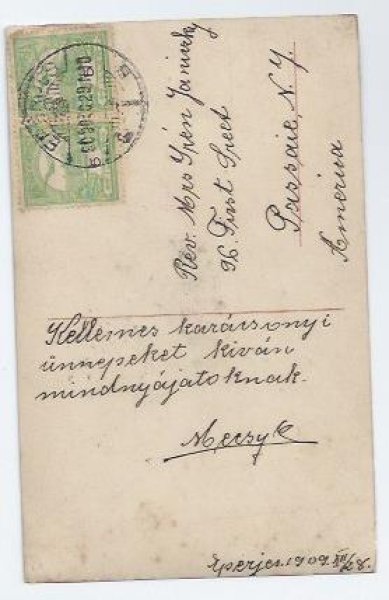 Rev. Mrs Irén Janiczky
96. First Street
Passaic, N. Y.
Amerika
Kellemes karácsonyi
ünnepeket kiván
mindnyájatoknak.
Meczy K
Eperjes 1909 XII/28.